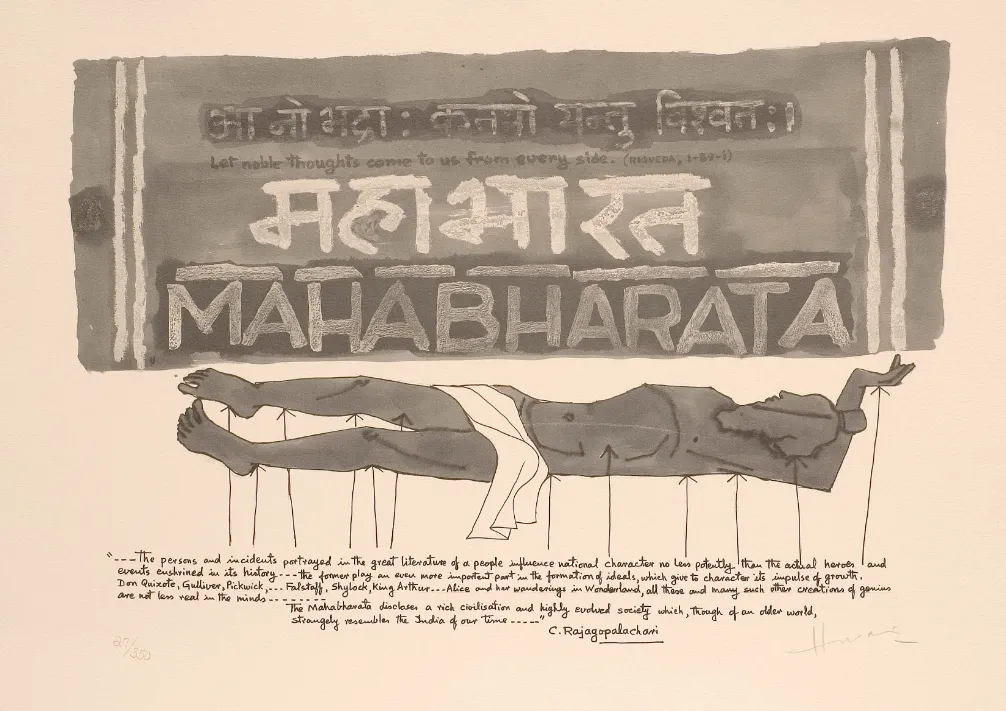 आ नो भद्राः क्रतवो यन्तु विश्वतः।
Let noble thoughts come to us from every side. (RIGVEDA, 1-89-1)
महाभारत
MAHABHARATA
"---The persons and incidents portrayed in the great literature of a people influence national character no less potently than the actual heroes and
events enshrined in its history---the former play an even more important part in the formation of ideals, which give to character its impulse of growth.
Don Quixote, Gulliver, Pickwick,--- Falstaff, Shylock, King Arthur---Alice and her wanderings in Wonderland, all these and many such other creations of genius
are not less real in the minds ---------
The Mahabharata discloses a rich civilisation and highly evolved society which, though of an older world,
strangely resembles the India of our time -----"
C. Rajagopalachari
27/350